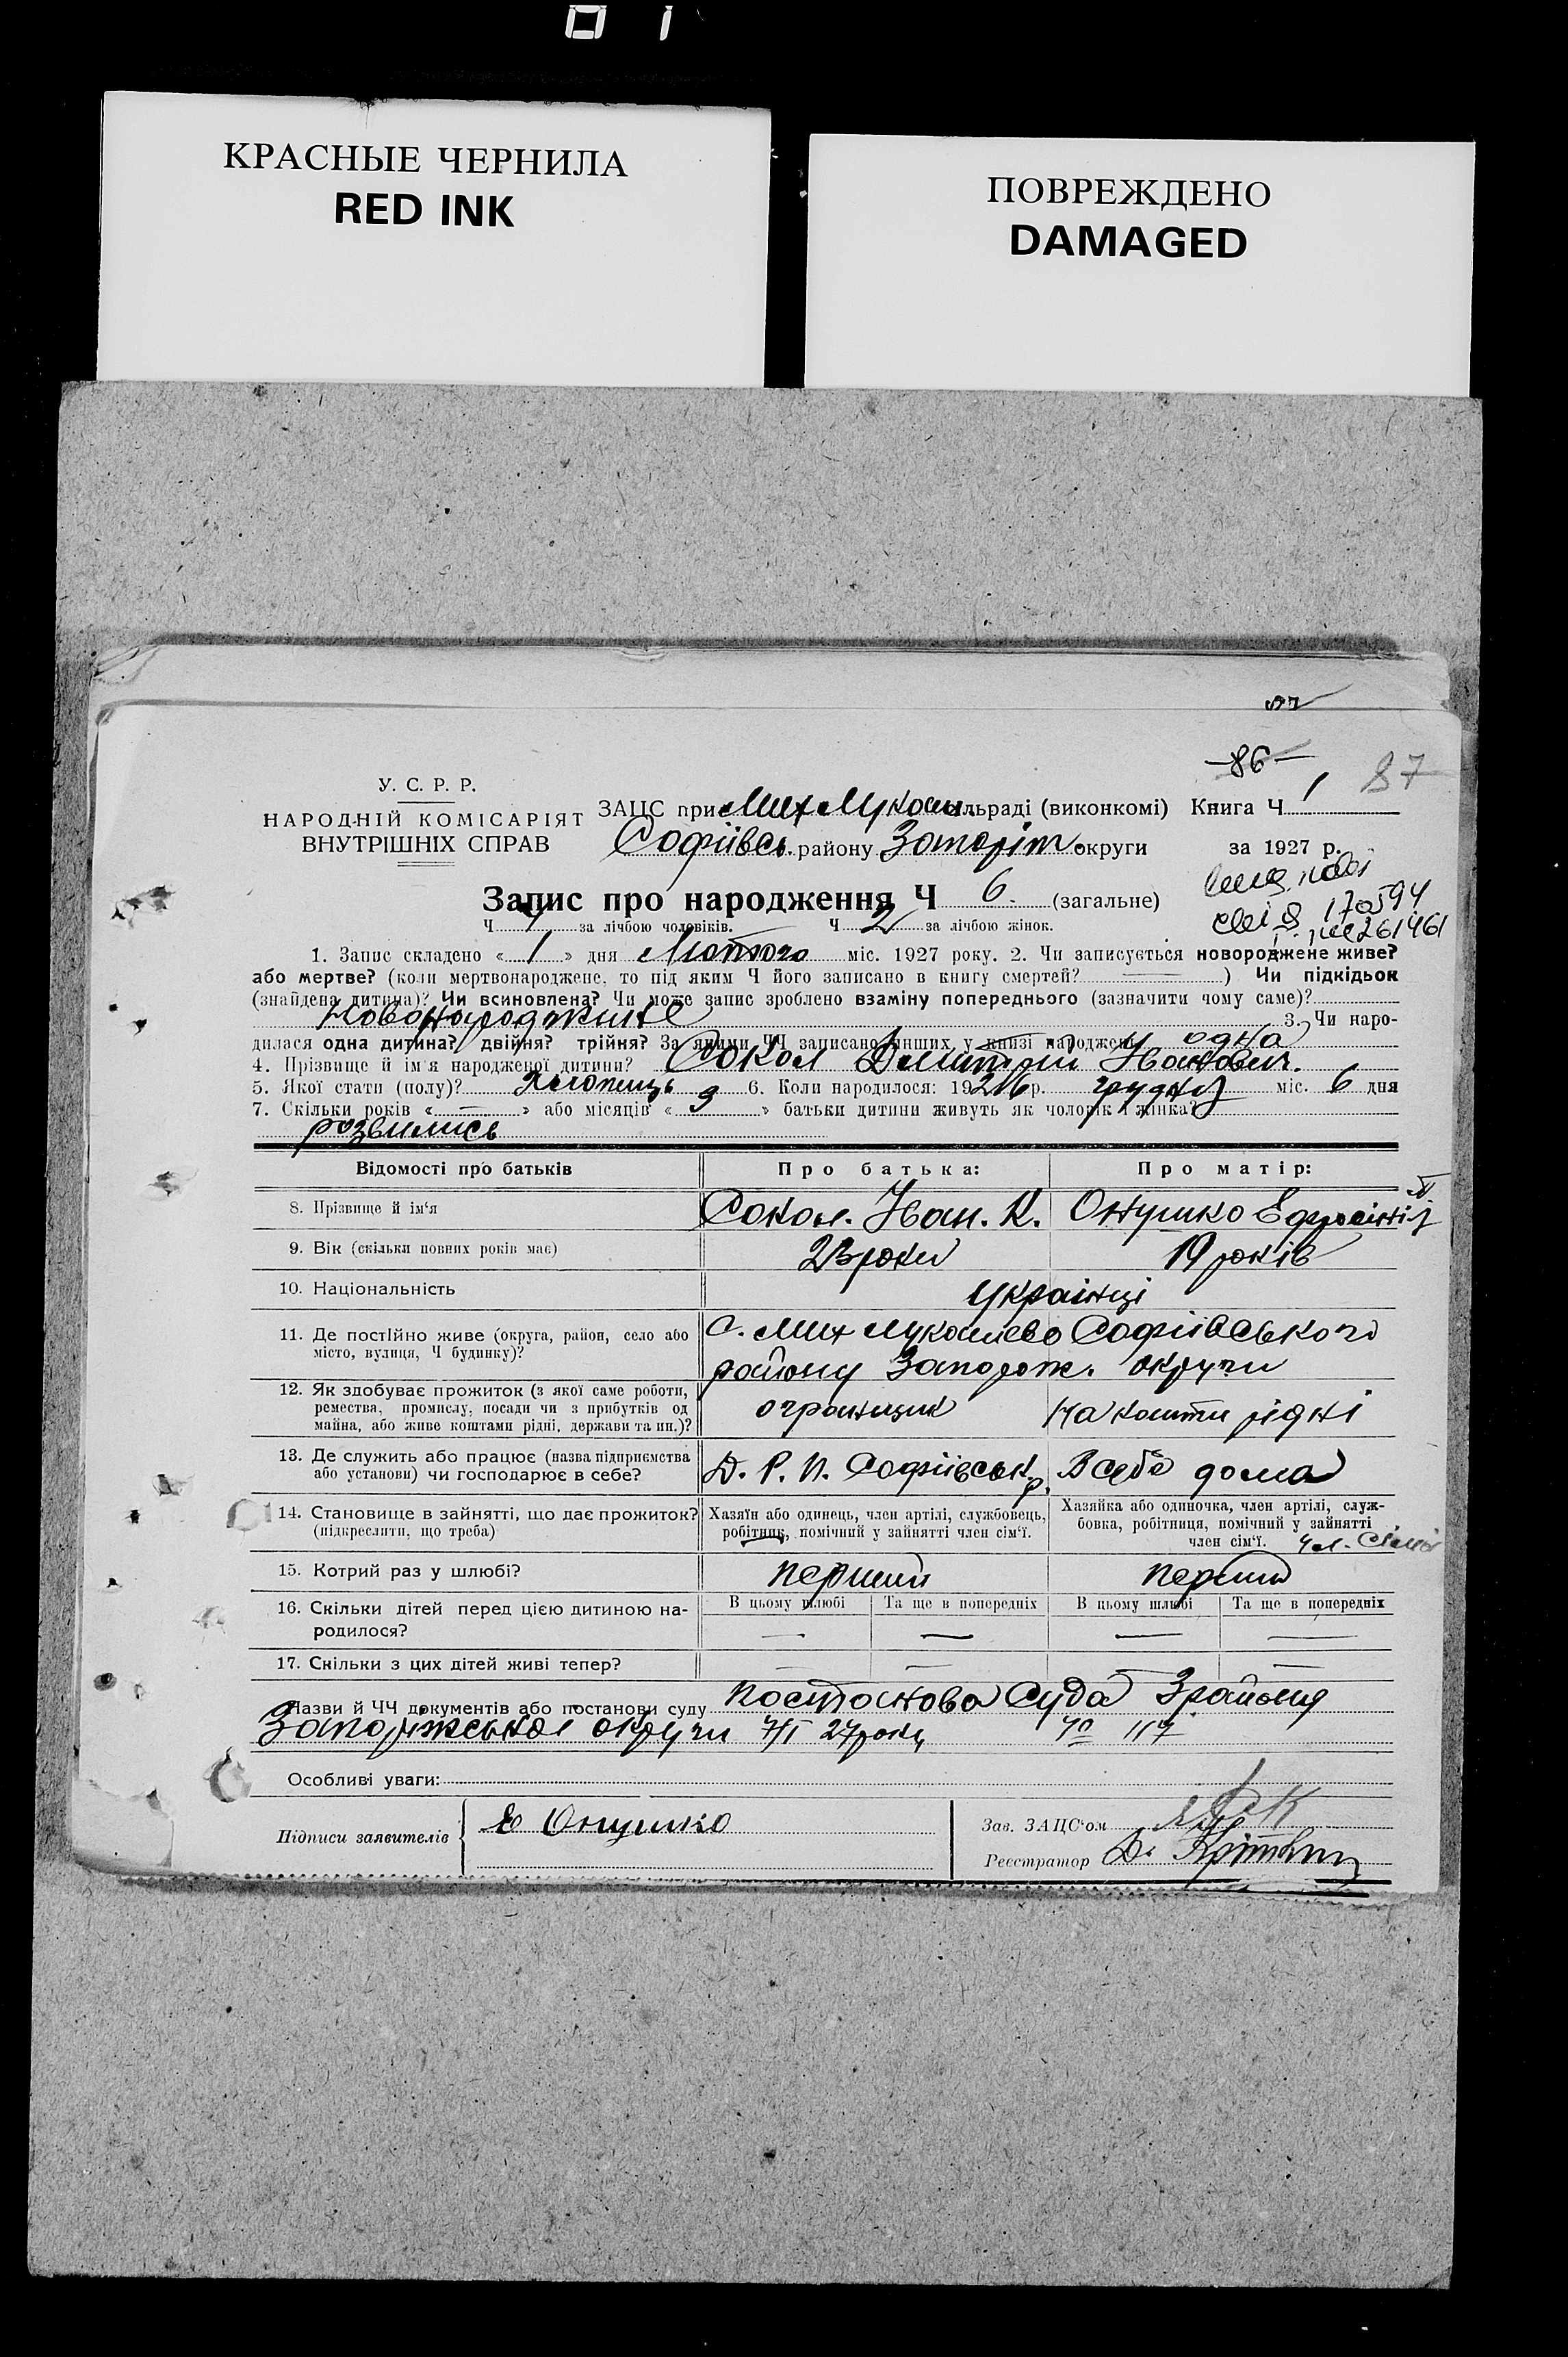 КРАСНЫЕ ЧЕРНИЛА
RED INK
ПОВРЕЖДЕНО
DAMAGED
86
87
У. С. Р. Р.
НАРОДНІЙ КОМІСАРІЯТ
ВНУТРІШНІХ СПРАВ
ЗАЦС при Мих Лукаш. сільраді (виконкомі) Книга Ч 1
Софіївсь. району Запоріж. округи за 1927 р.
Запис про народження Ч 6. (загальне)
Ч 4 за лічбою чоловіків. Ч 2 за лічбою жінок.
170594
261461
1. Запис складено « 1 » дня Лютого міс. 1927 року. 2. Чи записується новороджене живе?
або мертве? (коли мертвонароджене, то під яким Ч його записано в книгу смертей? ) Чи підкідьок
(знайдена дитина)? Чи всиновлена? Чи може запис зроблено взаміну попереднього (зазначити чому саме)?
Новонароджене 3. Чи наро-
дилася одна дитина? двійня? трійня? За якими ЧЧ записано инших у книзі народжень одна
4. Прізвище й ім'я народженої дитини? Сокол Дмитрий Иванович.
5. Якої стати (полу)? Хлопець 6. Коли народилося: 1926 р. грудня міс. 6 дня
7. Скільки років « — » або місяців « 9 » батьки дитини живуть як чоловік і жінка?
розвились
Відомості про батьків Про батька: Про матір:
8. Прізвище й ім'я Сокол. Иван. К. Онушко Ефросінія
9. Вік (скільки повних років має) 23 роки 19 років
10. Національність Українці
11. Де постійно живе (округа, район, село або місто, вулиця, Ч будинку)? С. Мих Лукашево Софіївського
району Запорож. округи
12. Як здобуває прожиток (з якої саме роботи, ремества, промислу, посади чи з прибутків од майна, або живе коштами рідні, держави та ин.)? на кошти рідні
13. Де служить або працює (назва підприємства або установи) чи господарює в себе? Д. Р. П. Софіївськ. р. В себе дома
14. Становище в зайнятті, що дає прожиток? (підкреслити, що треба) Хазяїн або одинець, член артілі, службовець, робітник, помічний у зайнятті член сім'ї. Хазяйка або одиночка, член артілі, служ-
бовка, робітниця, помічний у зайнятті
член сім'ї. чл. сімї
15. Котрий раз у шлюбі? перший перший
16. Скільки дітей перед цією дитиною на-
родилося? В цьому шлюбі Та ще в попередніх В цьому шлюбі Та ще в попередніх
17. Скільки з цих дітей живі тепер?
Назви й ЧЧ документів або постанови суду Постанова Суда 3 району
Запоріжської округи 7/I 27 року № 117
Особливі уваги:
Підписи заявителів Е Онушко
Зав. ЗАЦС'ом
Реєстратор Д.